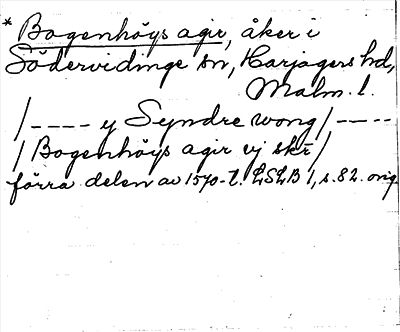 * Bogenhöys agir, åker i
Södervidinge sn, Harjagers hd,
Malm. l.
/ - - - - y Syndre wong / - - - -
/ Bogenhöys agir vj skr /
förra delen av 1570-t. LSLB 1, s. 82. orig.